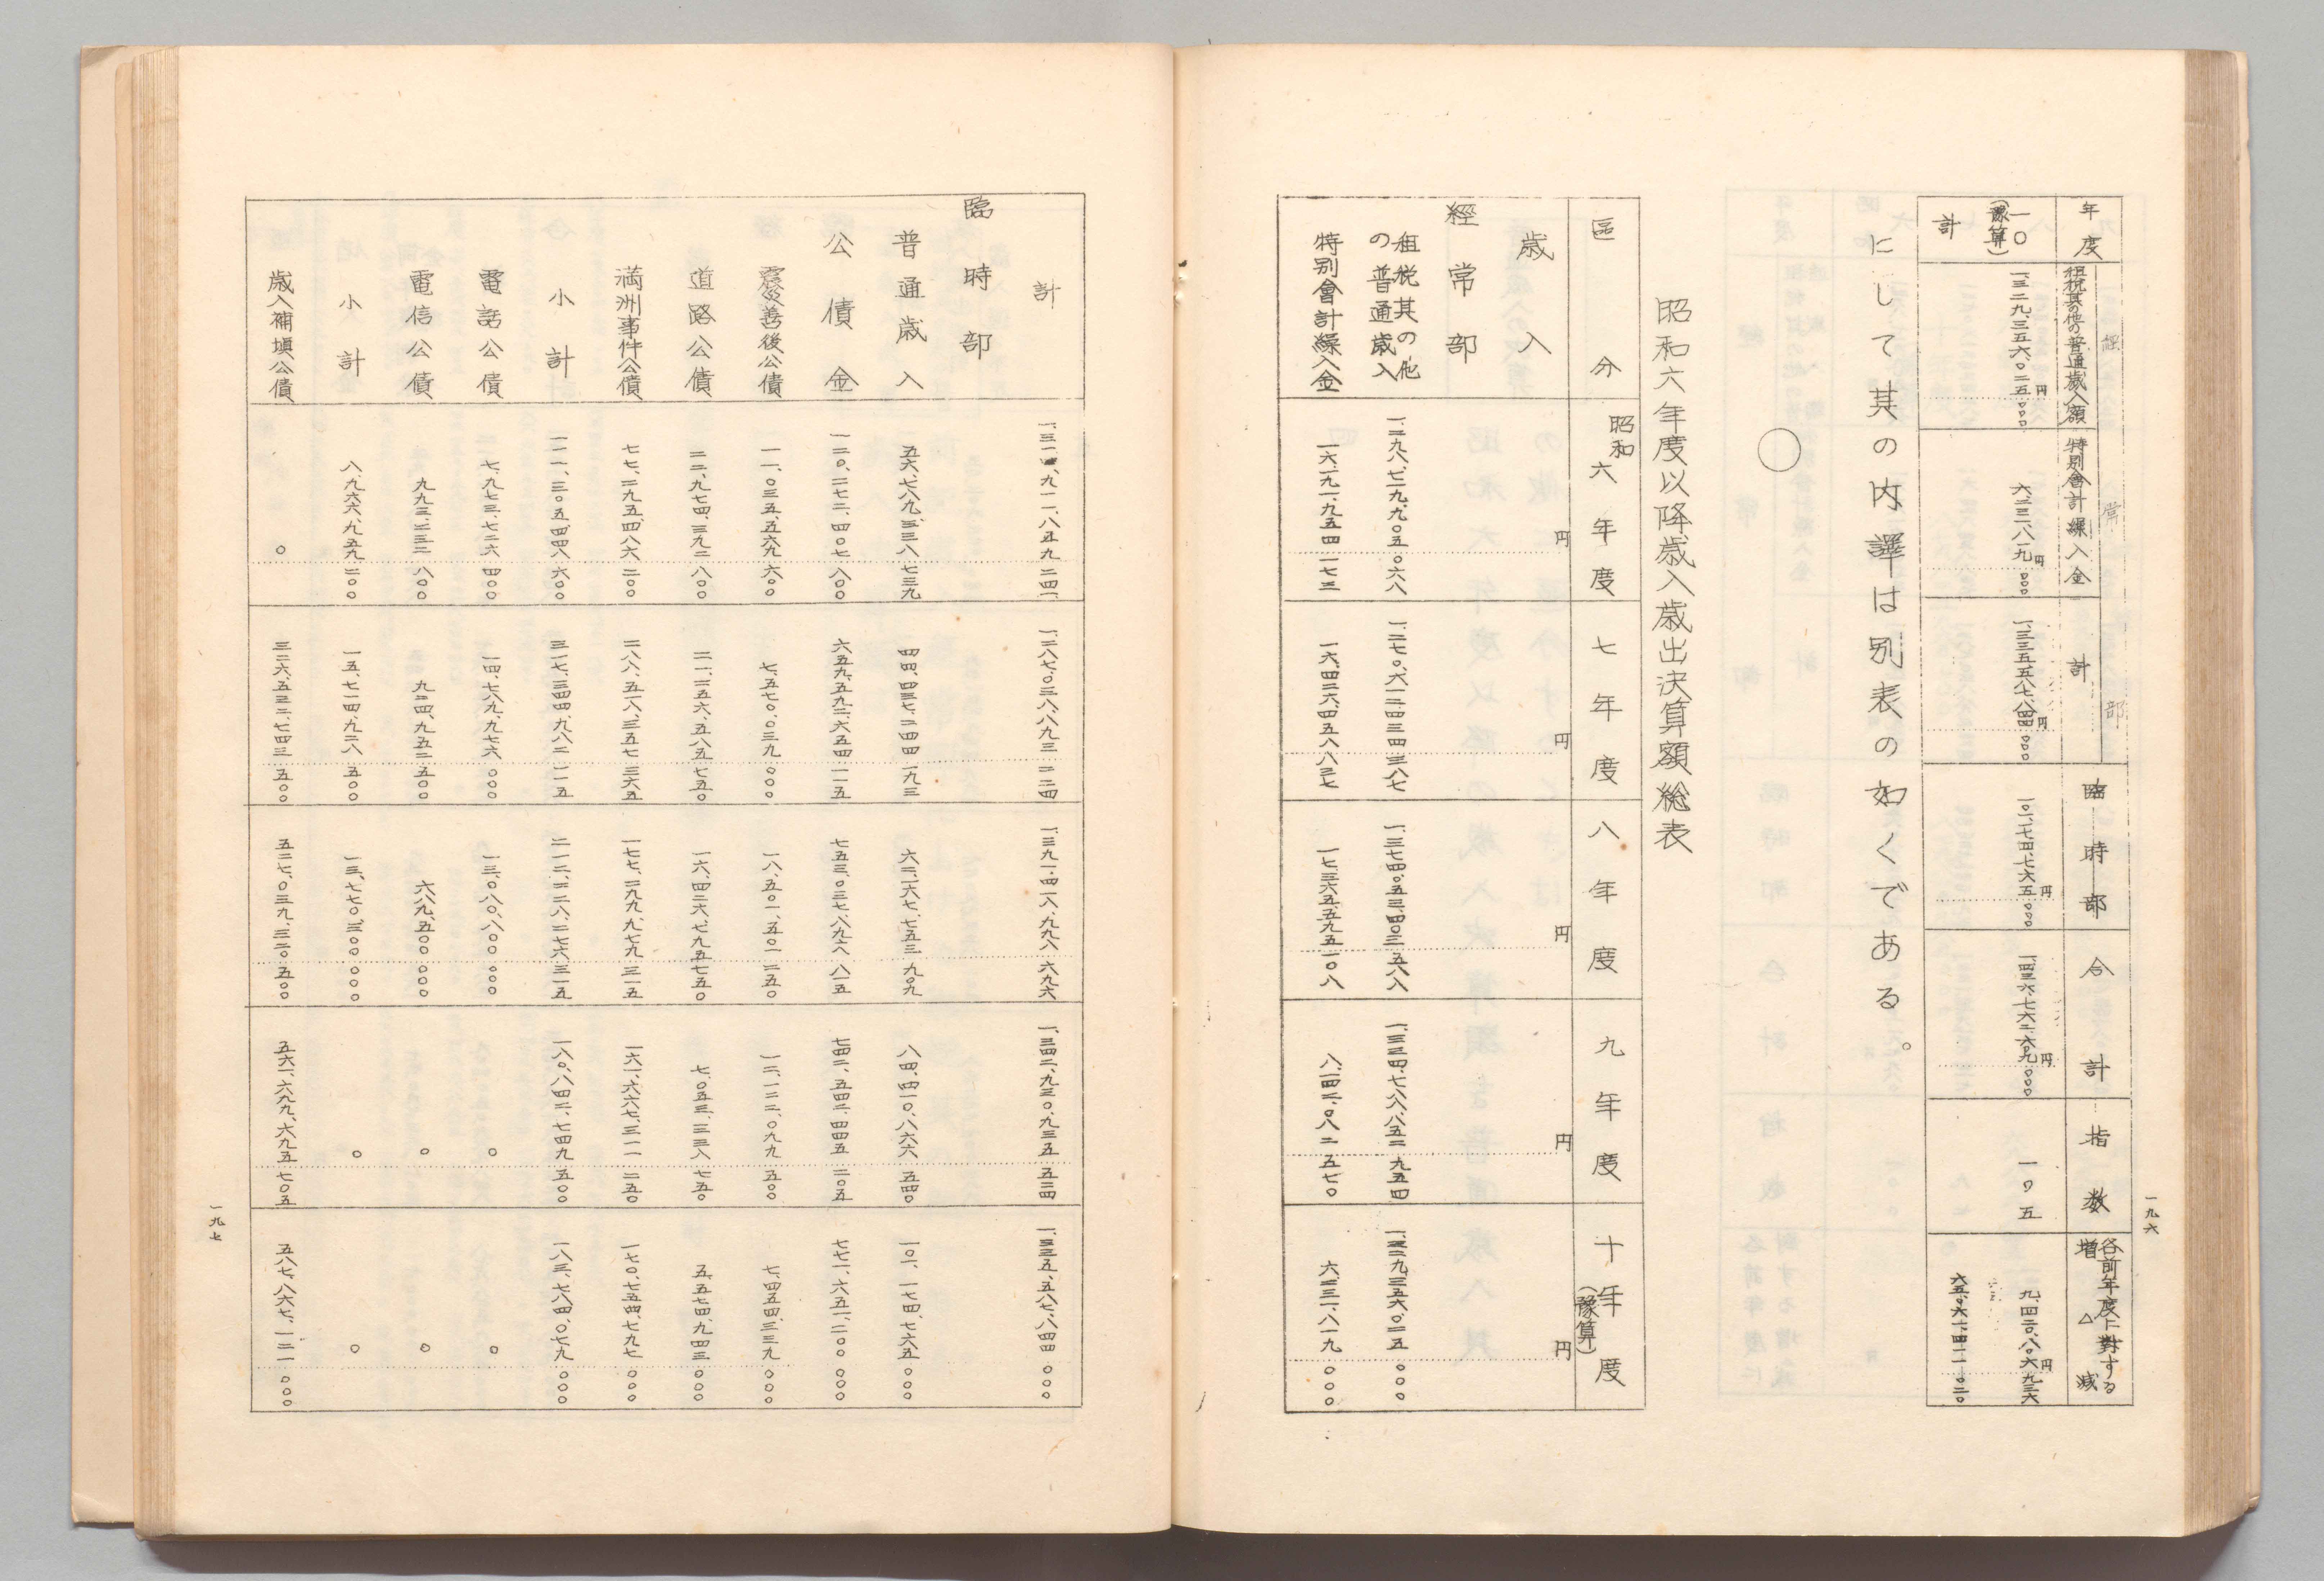 一九六
年度
經常部
租税其の他の普通歳入額
特別會計繰入金
計
臨時部
合計
指数
各前年度に對する
増△減
一〇
(豫算)
一、三二九、三五六、〇二五円〇〇〇
六、二三一、八一九円〇〇〇
一、三三五、五八七、八四四円〇〇〇
一〇一、一七四、七六五円〇〇〇
一、四三六、七六二、六〇九円〇〇〇
一〇五
九、四二〇、八〇六円九三六
計
六五、〇六一、四一一〇二〇
にして其の内譯は別表の如くである。
○
昭和六年度以降歳入歳出決算額総表
區分
昭和六年度
七年度
八年度
九年度
十年度
(豫算)
歳入
円 円 円 円 円
經常部
租税其の他の普通歳入 一、二九七、九一九、九〇五〇六八 一、二七〇、六一二、四三四三八七 一、三七四、〇五三、四〇三五八八 一、三三四、七八八、八五二九五四 一、三二九、三五六、〇二五〇〇〇
特別會計繰入金 一六、九九一、九五四一七三 一六、四二六、四五八八三七 一七、三六五、五九五一〇八 八、一四二、〇八二五七〇 六、二三一、八一九〇〇〇
計 一、三一四、九一一、八五九二四一 一、二八七、〇三八、八九三二二四 一、三九一、四一八、九九八六九六 一、三四二、九三〇、九三五五二四 一、三三五、五八七、八四四〇〇〇
臨時部
普通歳入 五六、七八九、三三八七三九 四四、四三七、二四四一九三 六二、一六七、七五三九〇九 八四、四一〇、八六六五四〇 一〇一、一七四、七六五〇〇〇
公債金 一二〇、二七二、四〇七八〇〇 六五九、五九二、六五四一一五 七五三、〇三七、八九六八一五 七四二、五四二、四四五二〇五 七七一、六五一、二〇〇〇〇〇
震災善後公債 一一、〇三五、五六九六〇〇 七、五七〇、〇三九〇〇〇 一八、五〇一、五〇一二五〇 一二、一二二、〇九九五〇〇 七、四五四、三三九〇〇〇
道路公債 二二、九七四、三九二八〇〇 二一、二五六、五八五七五〇 一六、四二六、七九五七五〇 七、〇五三、三三八七五〇 五、五七四、九四三〇〇〇
満洲事件公債 七七、二九五、四八六二〇〇 二八八、五一八、三五七三六五 一七七、二九九、九七九三一五 一六一、六六七、三一一二五〇 一七〇、七五四、七九七〇〇〇
小計 一一一、三〇五、四四八六〇〇 三一七、三四四、九八二一一五 二一二、二二八、二七六三一五 一八〇、八四二、七四九五〇〇 一八三、七八四、〇七九〇〇〇
電話公債 七、九七三、七二六四〇〇 一四、七八九、九七六〇〇〇 一三、〇八〇、八〇〇〇〇〇 〇 〇
電信公債 九九三、二三二八〇〇 九二四、九五二五〇〇 六八九、五〇〇〇〇〇 〇 〇
小計 八、九六六、九五九二〇〇 一五、七一四、九二八五〇〇 一三、七七〇、三〇〇〇〇〇 〇 〇
歳入補塡公債 〇 三二六、五三二、七四三五〇〇 五二七、〇三九、三二〇五〇〇 五六一、六九九、六九五七〇五 五八七、八六七、一二一〇〇〇
一九七